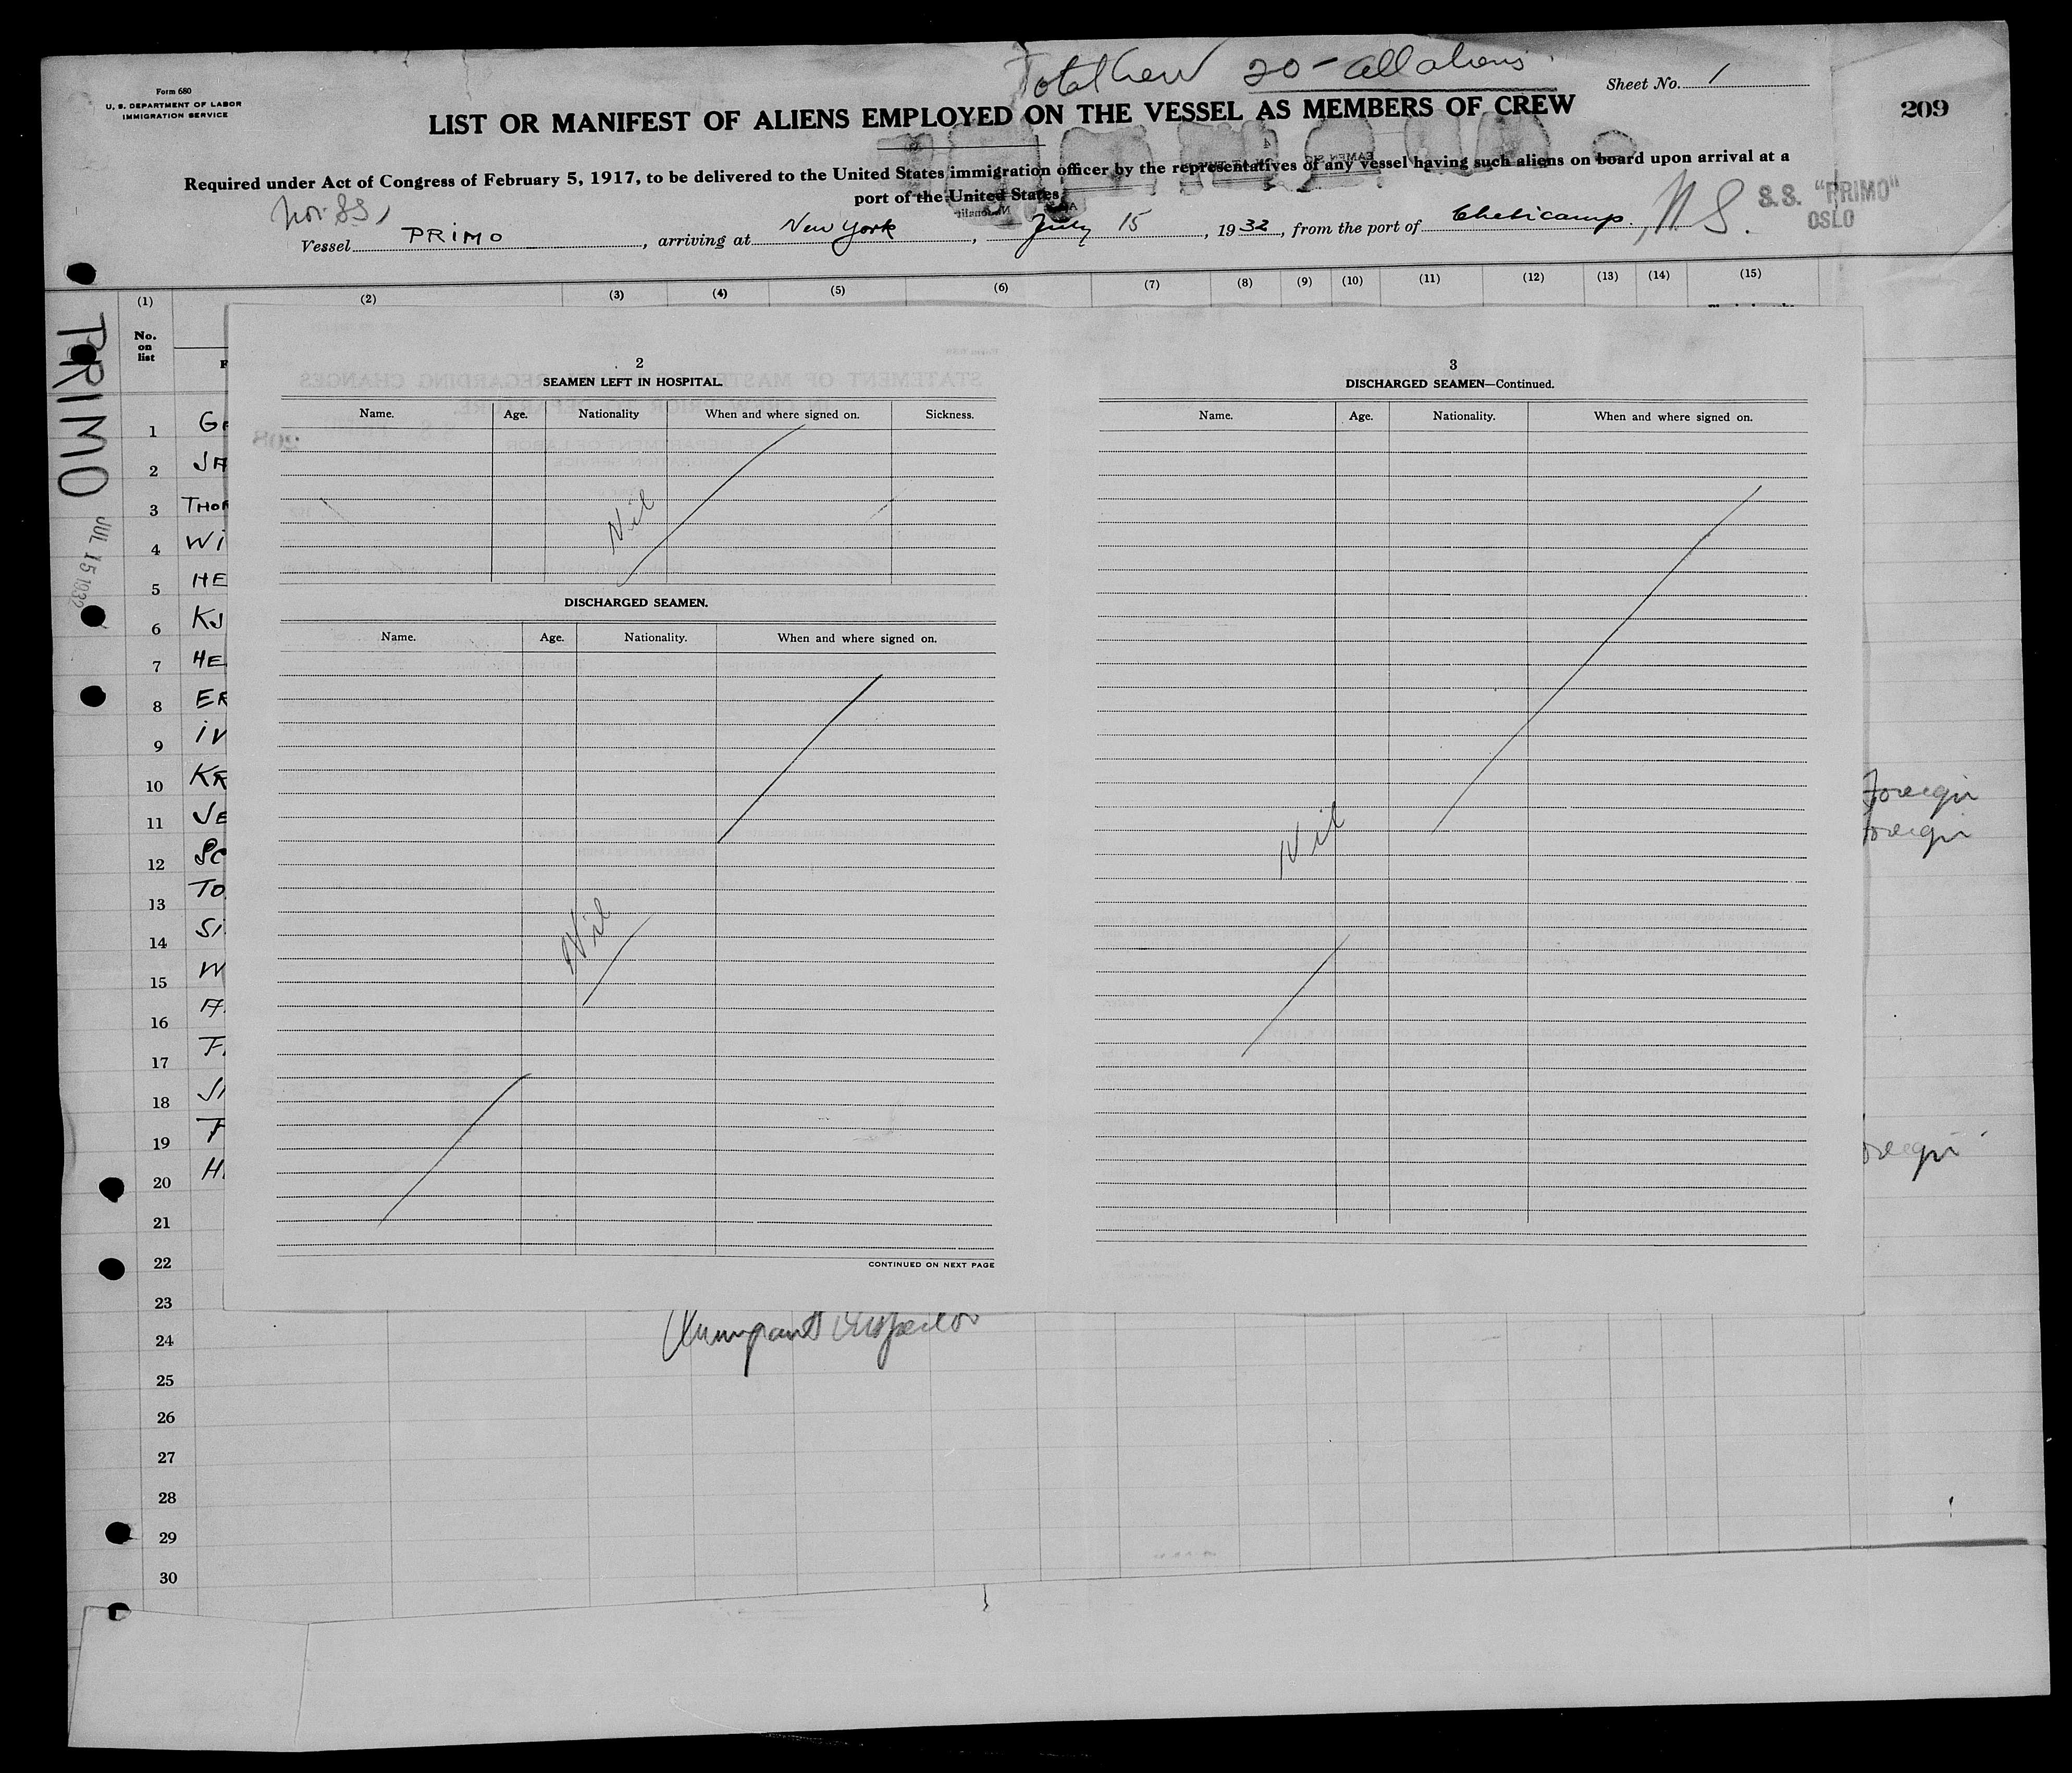 Total Crew 20 - all aliens
Form 680
U. S. DEPARTMENT OF LABOR
IMMIGRATION SERVICE
Sheet No. 1
209
LIST OR MANIFEST OF ALIENS EMPLOYED ON THE VESSEL AS MEMBERS OF CREW
Required under Act of Congress of February 5, 1917, to be delivered to the United States immigration officer by the representatives of any vessel having such aliens on board upon arrival at a
port of the United States
Nor. SS,
S.S. "PRIMO"
OSLO
Vessel PRIMO, arriving at New York, July 15, 1932, from the port of Cheticamp, N.S.
(1) (2) (3) (4) (5) (6) (7) (8) (9) (10) (11) (12) (13) (14) (15)
No.
on
list
F
PRIMO
JUL 15 1932
1 GA
2 JA
3 THOR
4 Wi
5 HE
6 KJ
7 HE
8 ER
9 iV
10 KR
11 JE
12 SC
13 TO
14 Si
15 W
16 A
17 F
18 Ji
19 F
20 H
21
22
23
24
25
26
27
28
29
30
2
SEAMEN LEFT IN HOSPITAL.
Name. Age. Nationality When and where signed on. Sickness.
Nil
DISCHARGED SEAMEN.
Name. Age. Nationality. When and where signed on.
Nil
CONTINUED ON NEXT PAGE
3
DISCHARGED SEAMEN—Continued.
Name. Age. Nationality. When and where signed on.
Nil
Foreign
Foreign
oreign
Immigrant Inspector